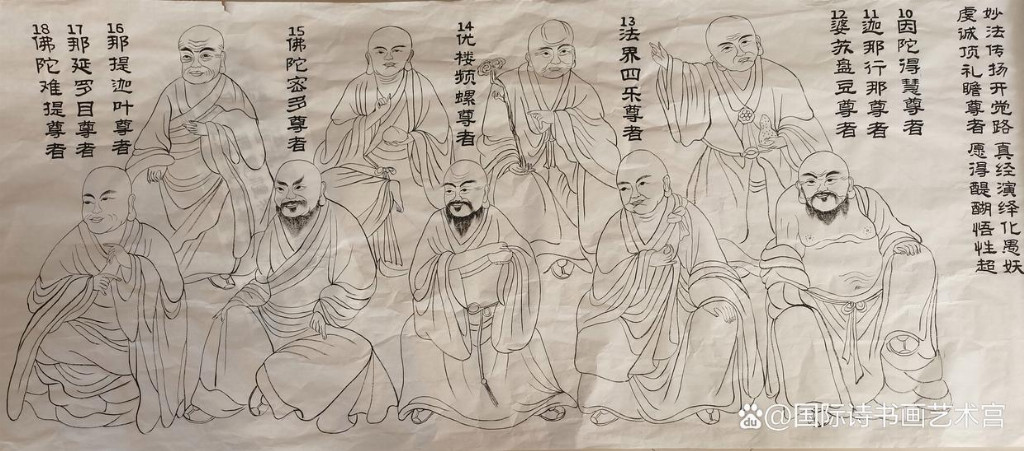 妙法传扬开觉路 真经演绎化愚妖
虔诚顶礼瞻尊者 愿得醍醐悟性超
10因陀得慧尊者
11迦那行那尊者
12婆苏盘豆尊者
13法界四乐尊者
14优楼频螺尊者
15佛陀密多尊者
16那提迦叶尊者
17那延罗目尊者
18佛陀难提尊者
du @国际诗书画艺术宫